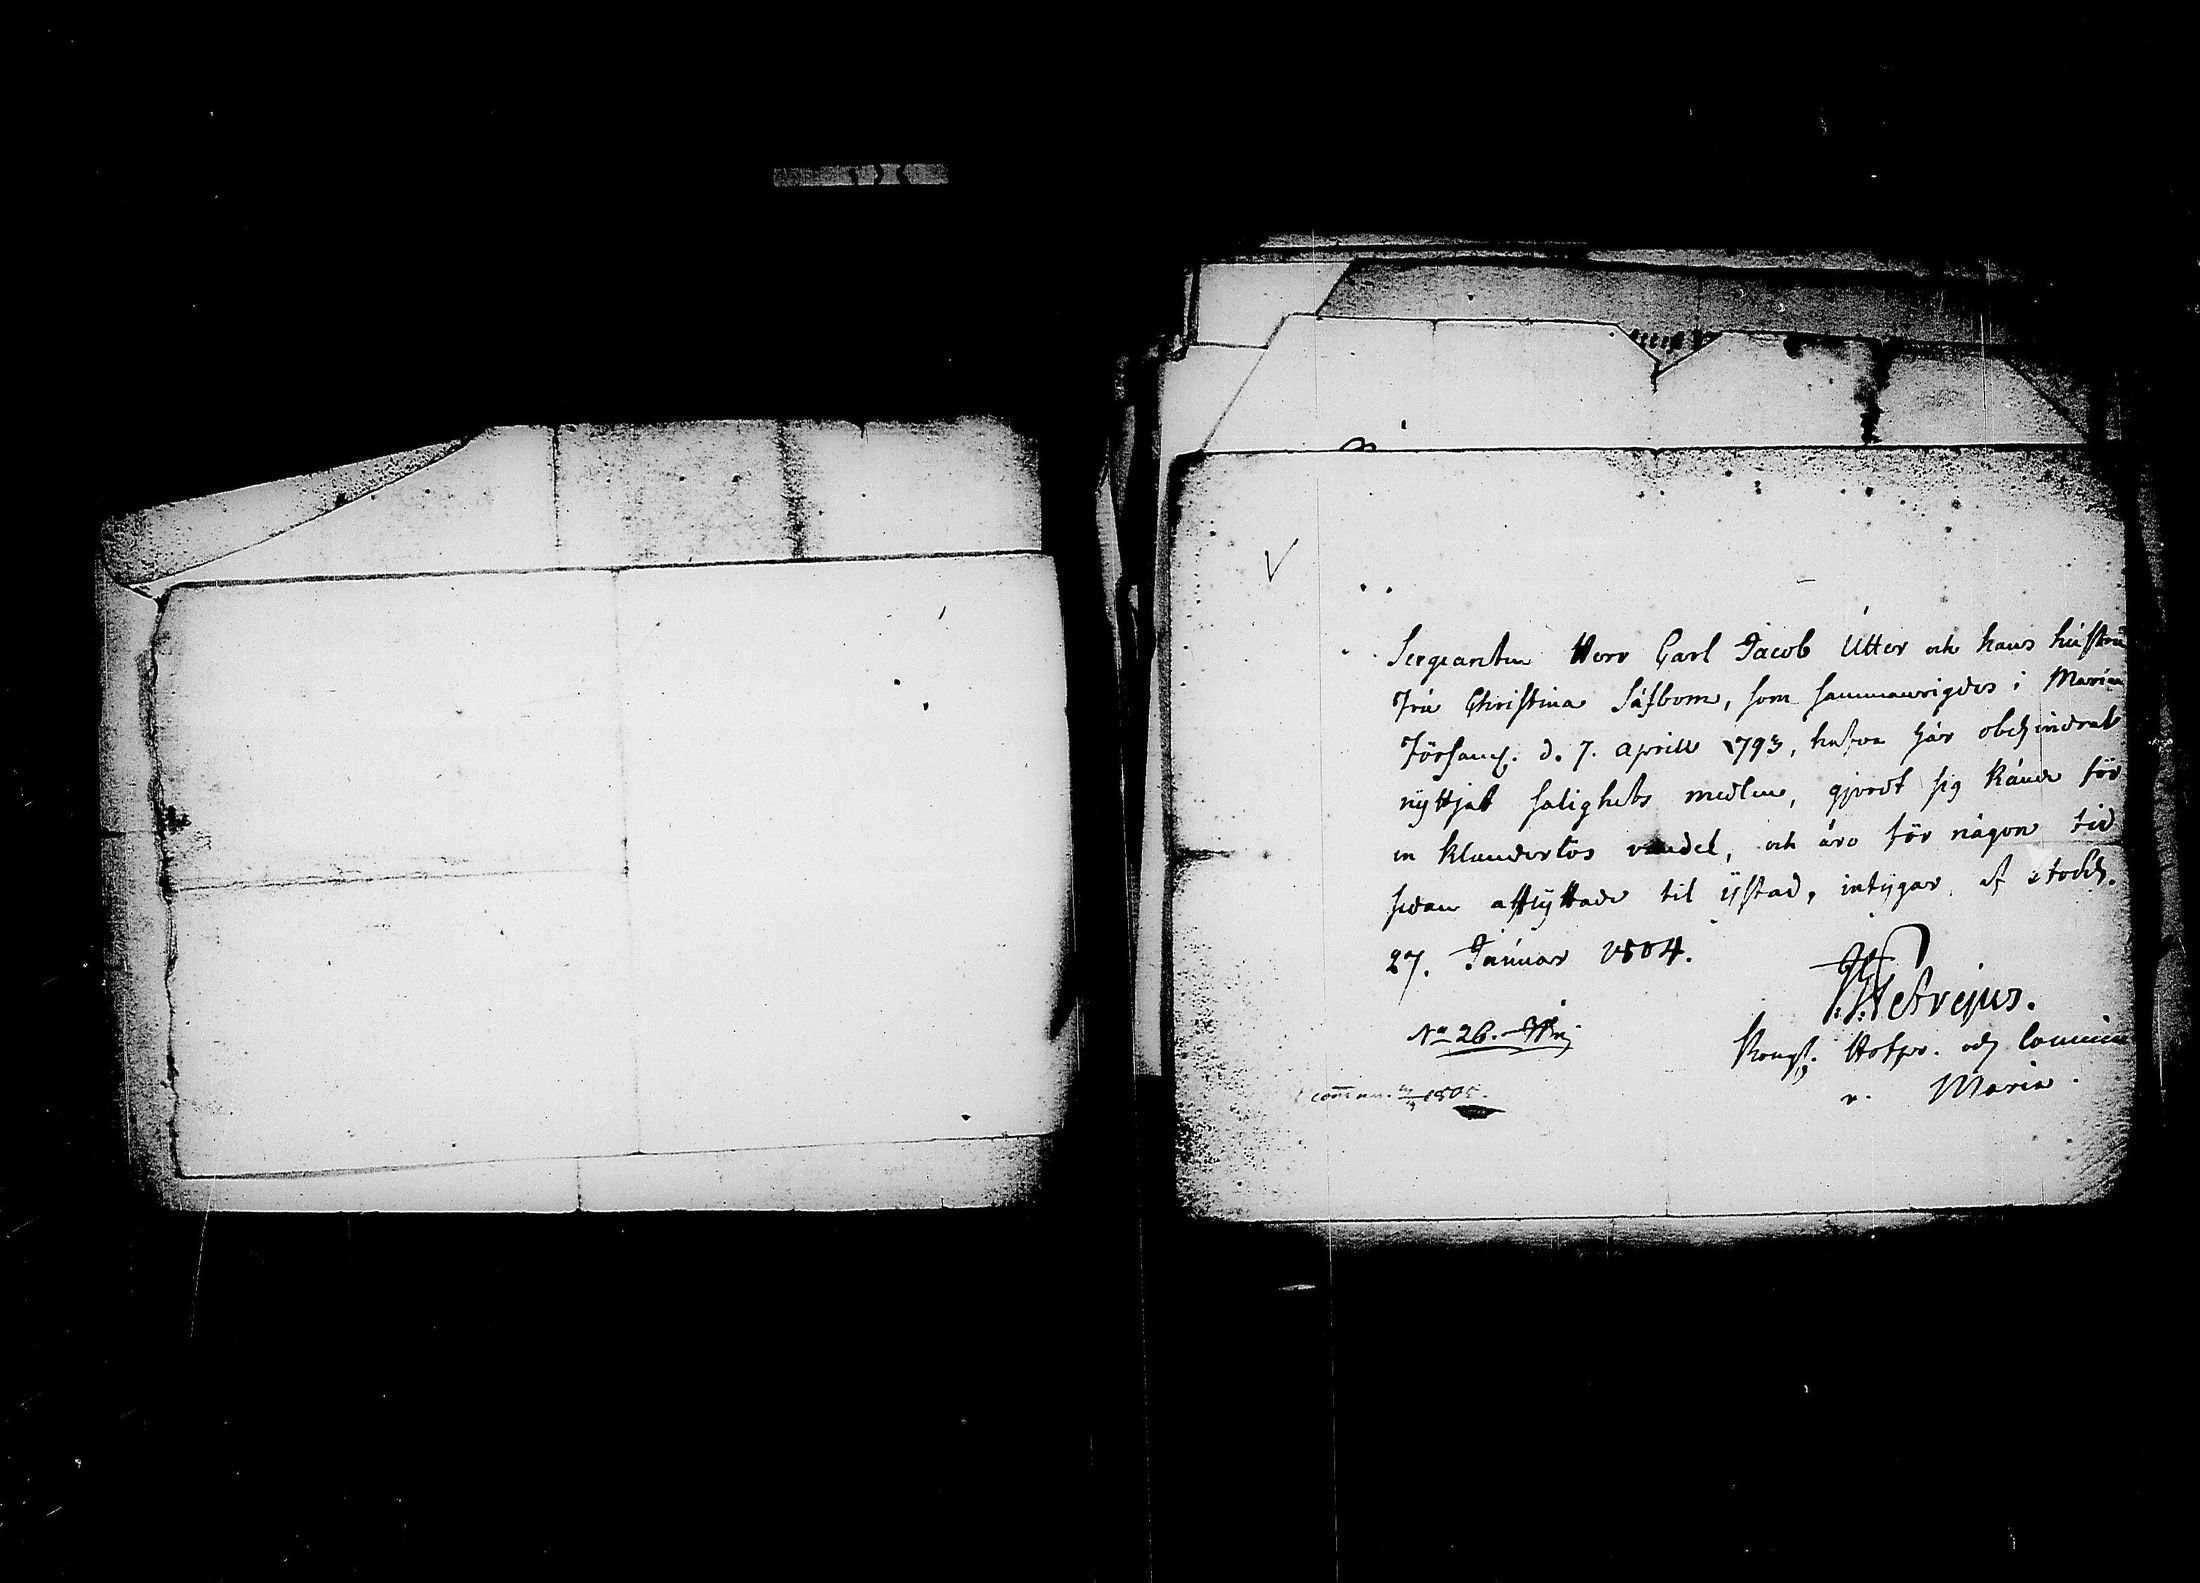 Sergeanten Herr Carl Jacob Utter och hans hustru
Fru Christina Säfbom, som sammanvigdes i Maria
Församl. d. 7. Aprill 1793, hafva här obehindrat
nyttjat salighets medlen, gjordt sig kände för
en klanderlös vandel, och äro för någon tid
sedan afflyttade til Ystad, intygar af Stockh.
27. Januar 1804.
No 26.
Kongl. Hofpr. och Commin
v. Maria.
comun. 1805.